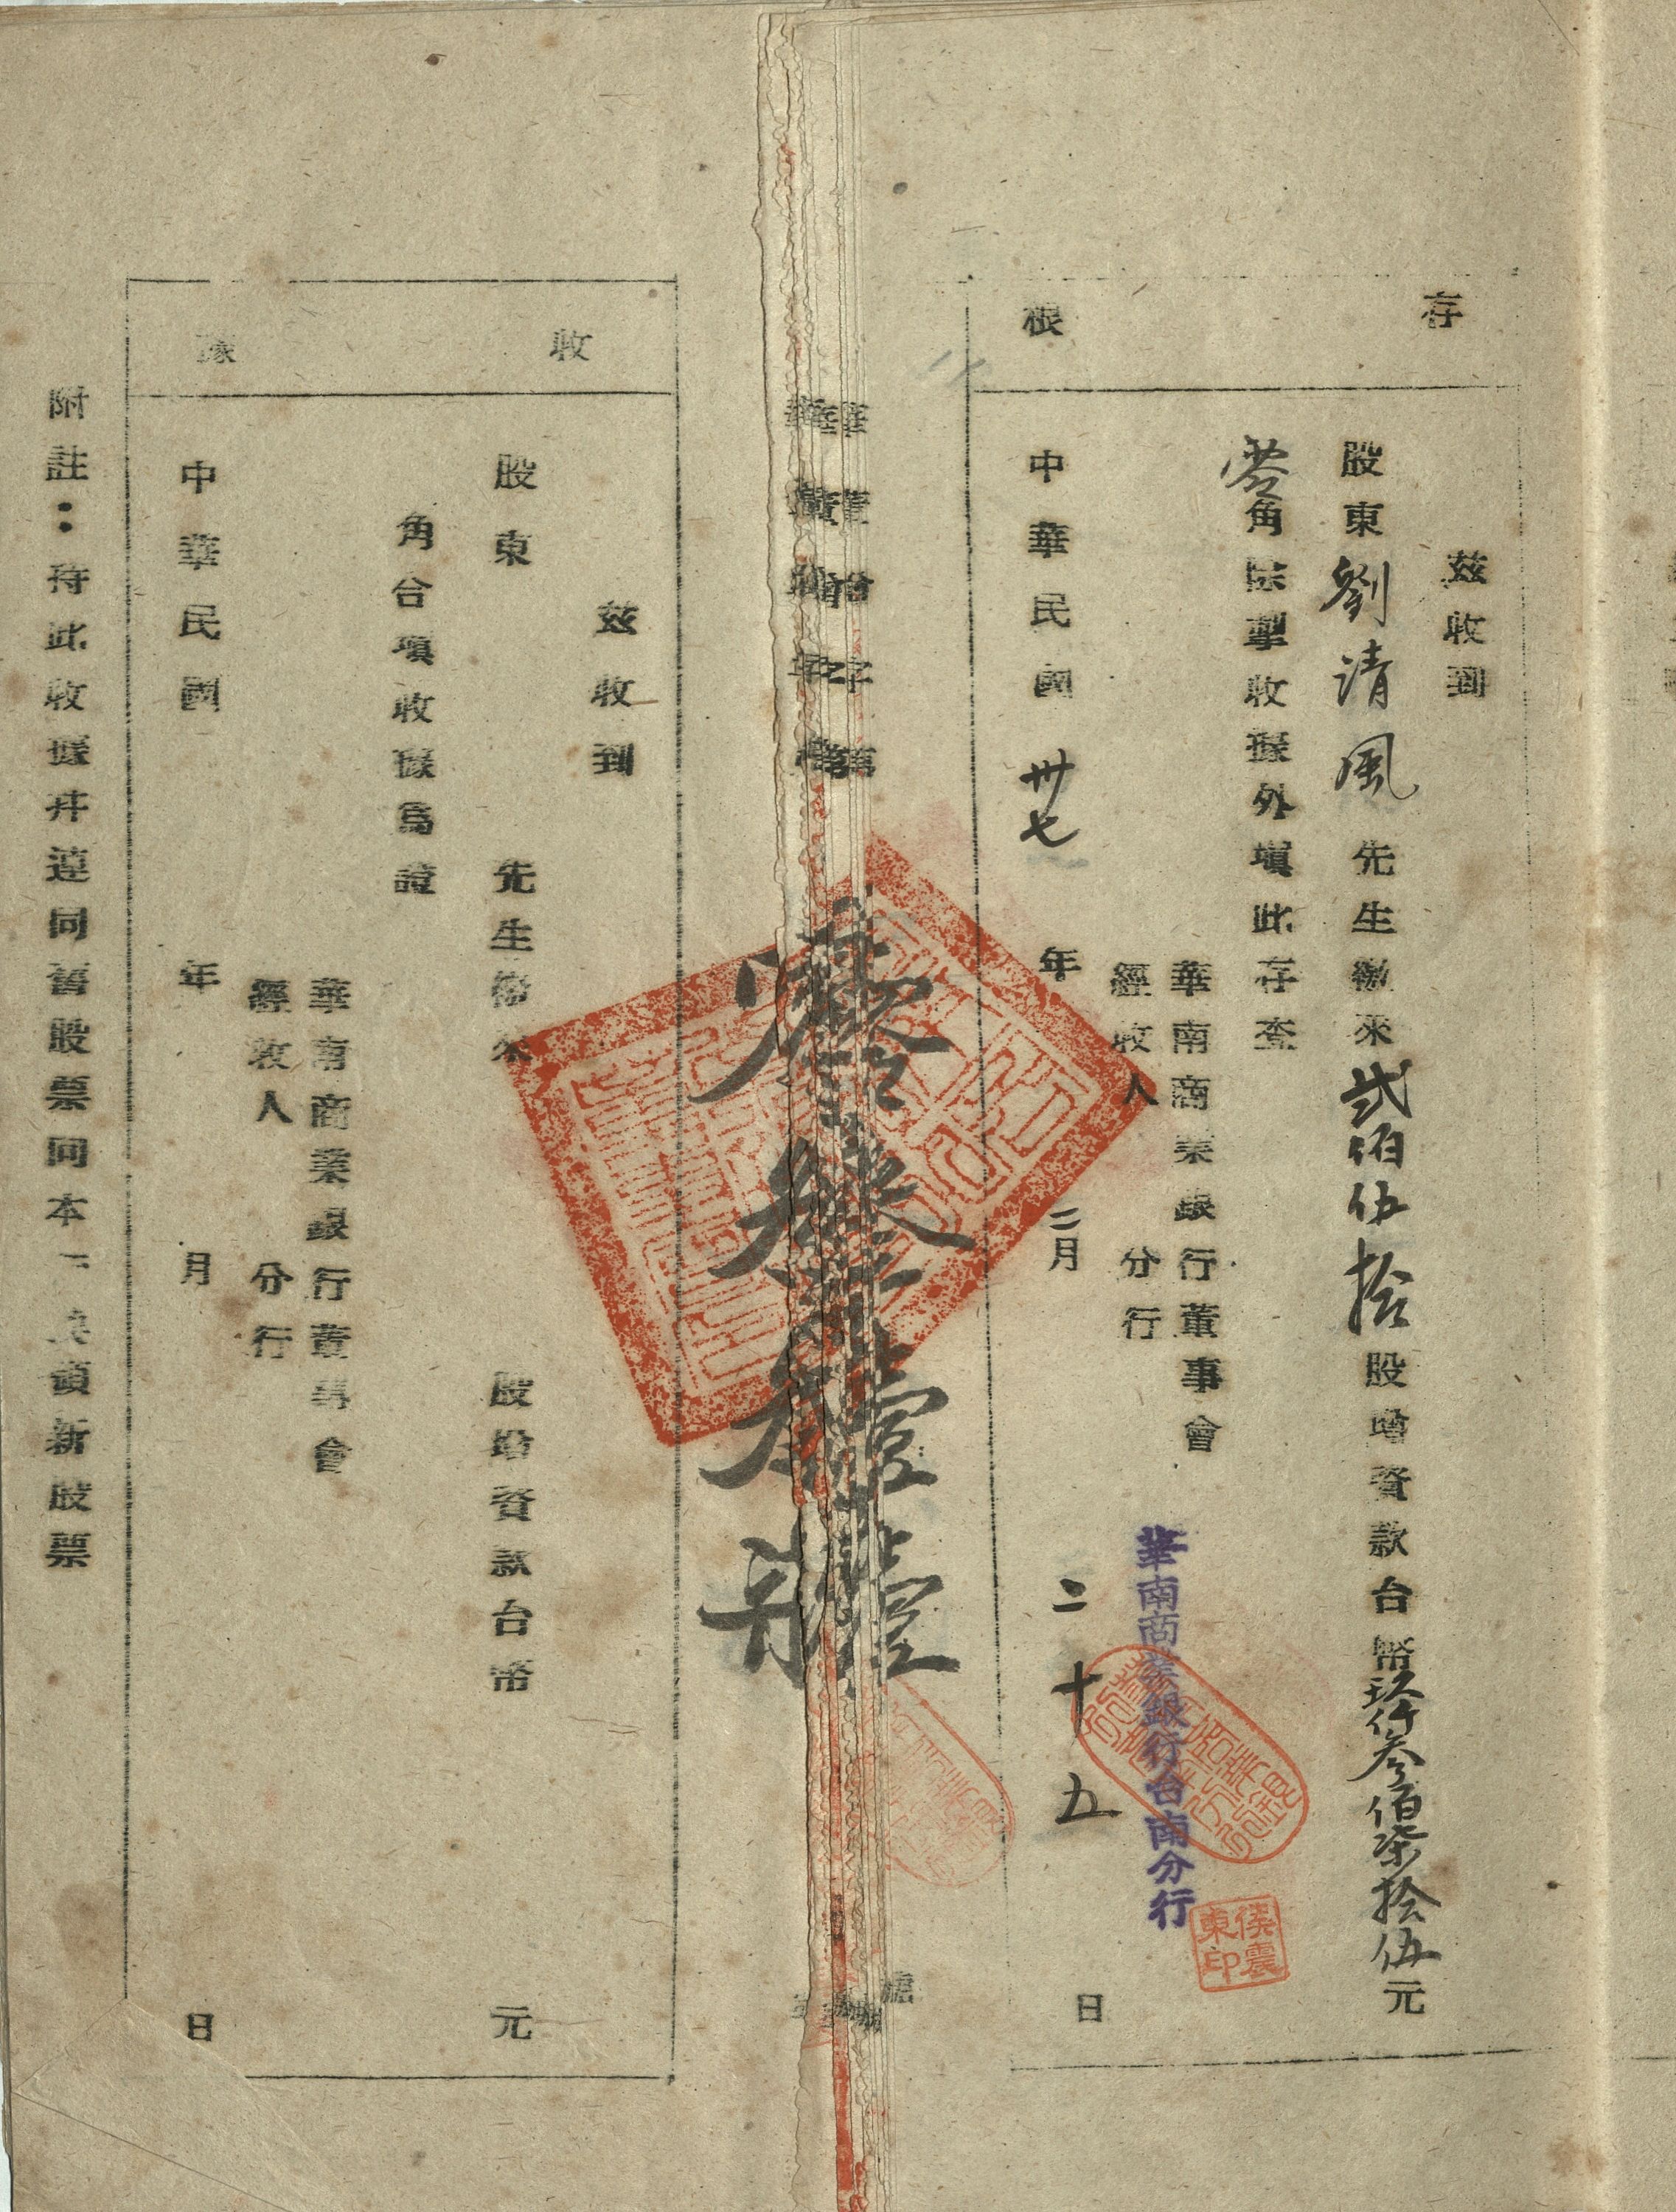 存根
茲收到
股東劉清風先生繳來貳佰伍拾股增資款台幣玖仟叁佰柒拾伍元
零角除掣收據外塡此存查
華南商業銀行董事會
經收人 分行
華南商業銀行台南分行
侯震東印
中華民國卅七年二月二十五日
收據
茲收到
股東 先生繳來 股增資款台幣 元
角合塡收據爲證
華南商業銀行董事會
經收人 分行
中華民國 年 月 日
附註：持此收據并連同舊股票向本行換領新股票